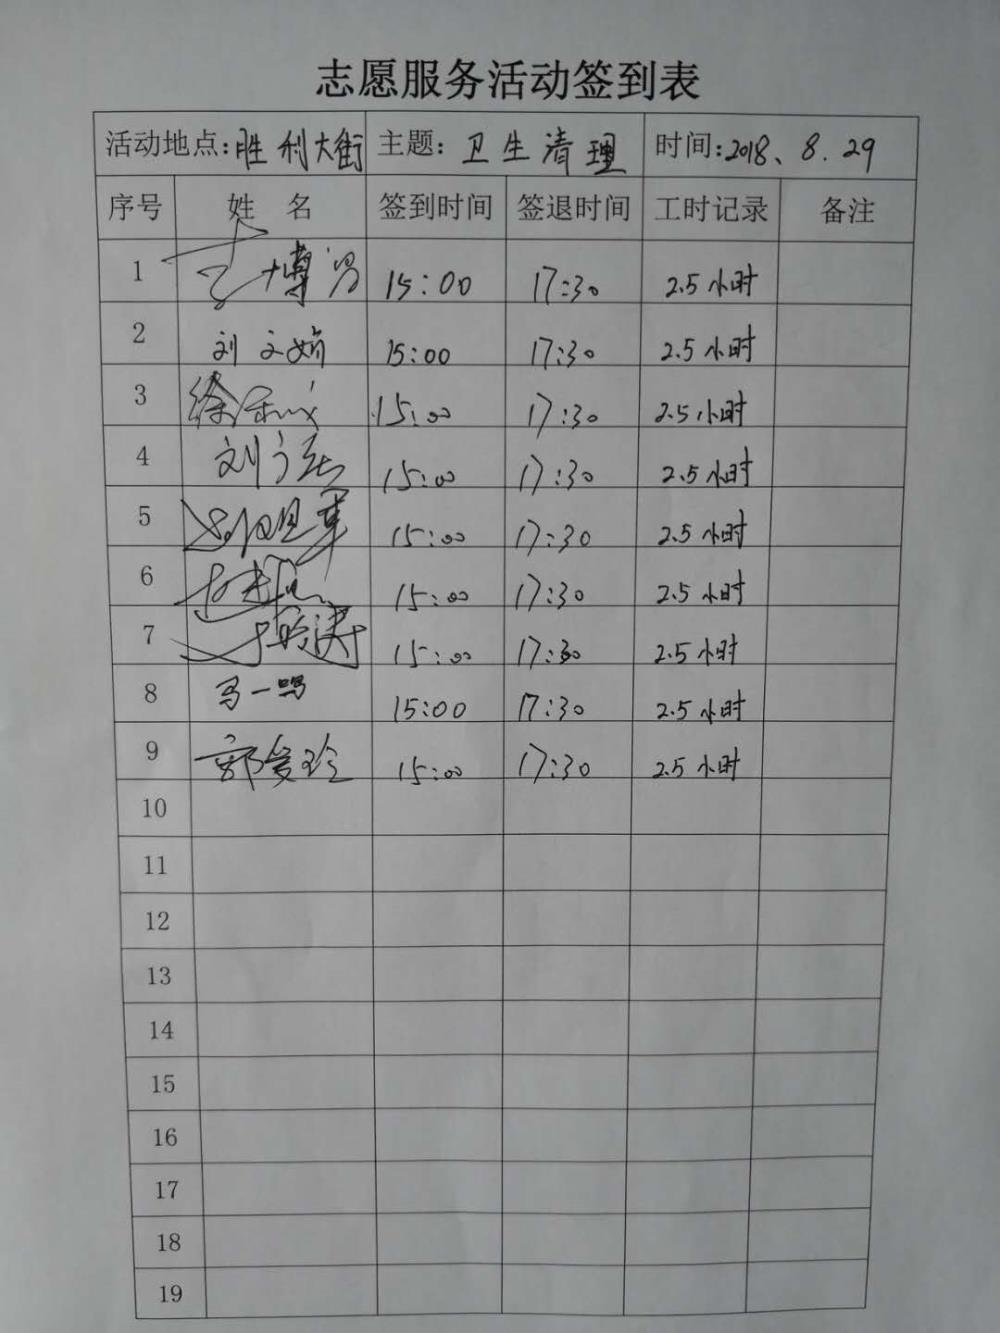 志愿服务活动签到表
活动地点:胜利大街 主题:卫生清理 时间:2018、8.29
序号 姓名 签到时间 签退时间 工时记录 备注
1 15:00 17:30 2.5小时
2 刘文娟 15:00 17:30 2.5小时
3 徐 15:00 17:30 2.5小时
4 刘 15:00 17:30 2.5小时
5 15:00 17:30 2.5小时
6 15:00 17:30 2.5小时
7 15:00 17:30 2.5小时
8 马一鸣 15:00 17:30 2.5小时
9 郭爱玲 15:00 17:30 2.5小时
10
11
12
13
14
15
16
17
18
19